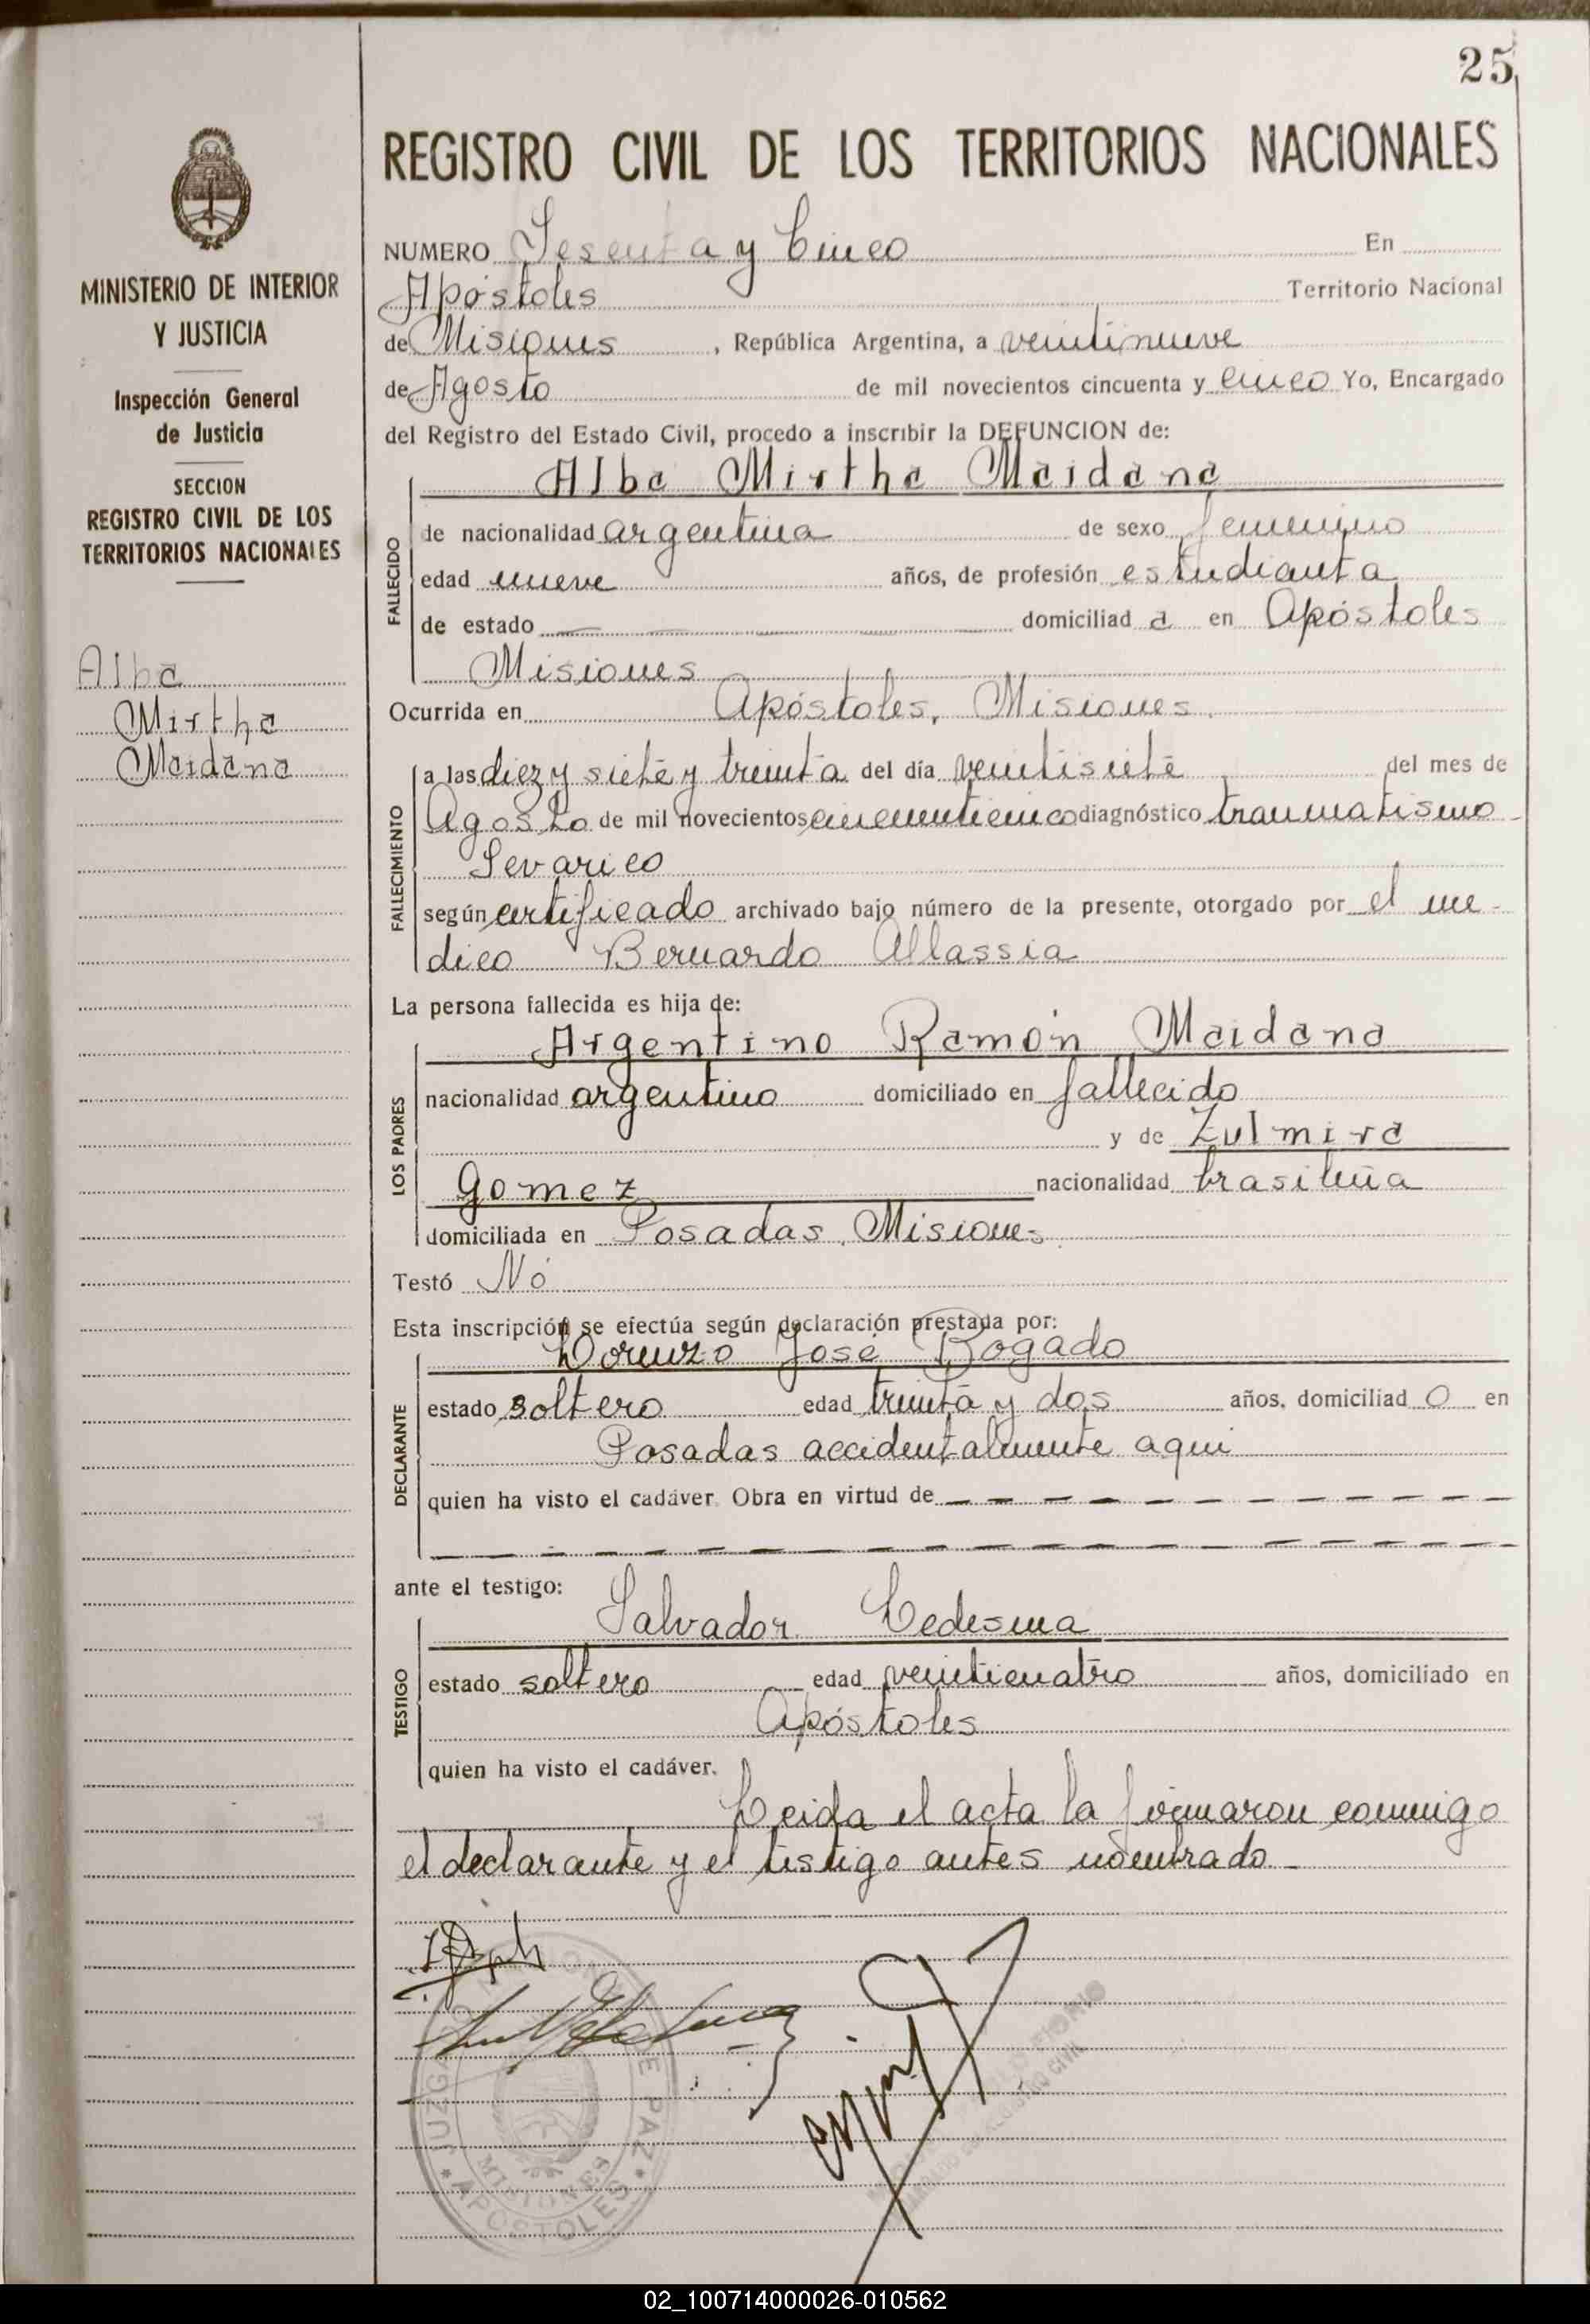 25
REGISTRO CIVIL DE LOS TERRITORIOS NACIONALES
MINISTERIO DE INTERIOR
Y JUSTICIA
Inspección General
de Justicia
SECCION
REGISTRO CIVIL DE LOS
TERRITORIOS NACIONALES
Alba
Mirtha
Maidana
NUMERO Sesenta y Cinco En
Apóstoles Territorio Nacional
de Misiones, República Argentina, a veintinueve
de Agosto de mil novecientos cincuenta y cinco Yo, Encargado
del Registro del Estado Civil, procedo a inscribir la DEFUNCION de:
FALLECIDO
Alba Mirtha Maidana
de nacionalidad argentina de sexo femenino
edad nueve años, de profesión estudianta
de estado — domiciliad a en Apóstoles
Misiones
Ocurrida en Apóstoles, Misiones.
FALLECIMIENTO
a las diez y siete y treinta del día veintisiete del mes de
Agosto de mil novecientos cincuenticinco diagnóstico traumatismo
según certificado archivado bajo número de la presente, otorgado por el me-
dico Bernardo Allassia
La persona fallecida es hija de:
LOS PADRES
Argentino Ramón Maidana
nacionalidad argentino domiciliado en fallecido
y de Zulmira
Gomez nacionalidad brasileña
domiciliada en Posadas, Misiones
Testó Nó
Esta inscripción se efectúa según declaración prestada por:
DECLARANTE
Lorenzo José Bogado
estado soltero edad treinta y dos años, domiciliad o en
Posadas accidentalmente aqui
quien ha visto el cadáver. Obra en virtud de — — — — — — — — — — —
— — — — — — — — — — — — — — — — — — — —
ante el testigo:
TESTIGO
Salvador Ledesma
estado soltero edad veinticuatro años, domiciliado en
Apóstoles
quien ha visto el cadáver.
Leida el acta la firmaron conmigo
el declarante y el testigo antes nombrado
JUZGADO DE PAZ
MISIONES
APOSTOLES
02_100714000026-010562